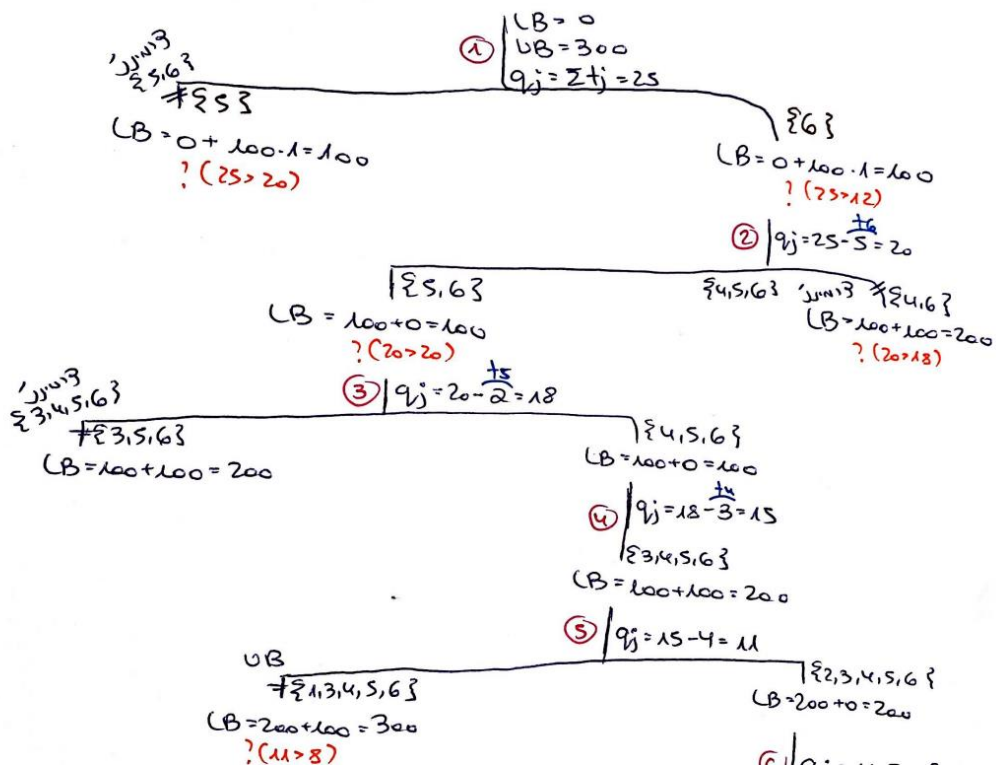 ① LB = 0
UB = 300
qj = Σtj = 25
{5,6}
{5}
LB = 0 + 100·1 = 100
? (25 > 20)
{6}
LB = 0 + 100·1 = 100
? (25 > 12)
② qj = 25 - 5 = 20
t6
{5,6}
LB = 100 + 0 = 100
? (20 > 20)
{4,5,6}
{4,6}
LB = 100 + 100 = 200
? (20 > 18)
③ qj = 20 - 2 = 18
t5
{3,4,5,6}
{3,5,6}
LB = 100 + 100 = 200
{4,5,6}
LB = 100 + 0 = 100
④ qj = 18 - 3 = 15
t4
{3,4,5,6}
LB = 100 + 100 = 200
⑤ qj = 15 - 4 = 11
UB
{1,3,4,5,6}
LB = 200 + 100 = 300
? (11 > 8)
{2,3,4,5,6}
LB = 200 + 0 = 200